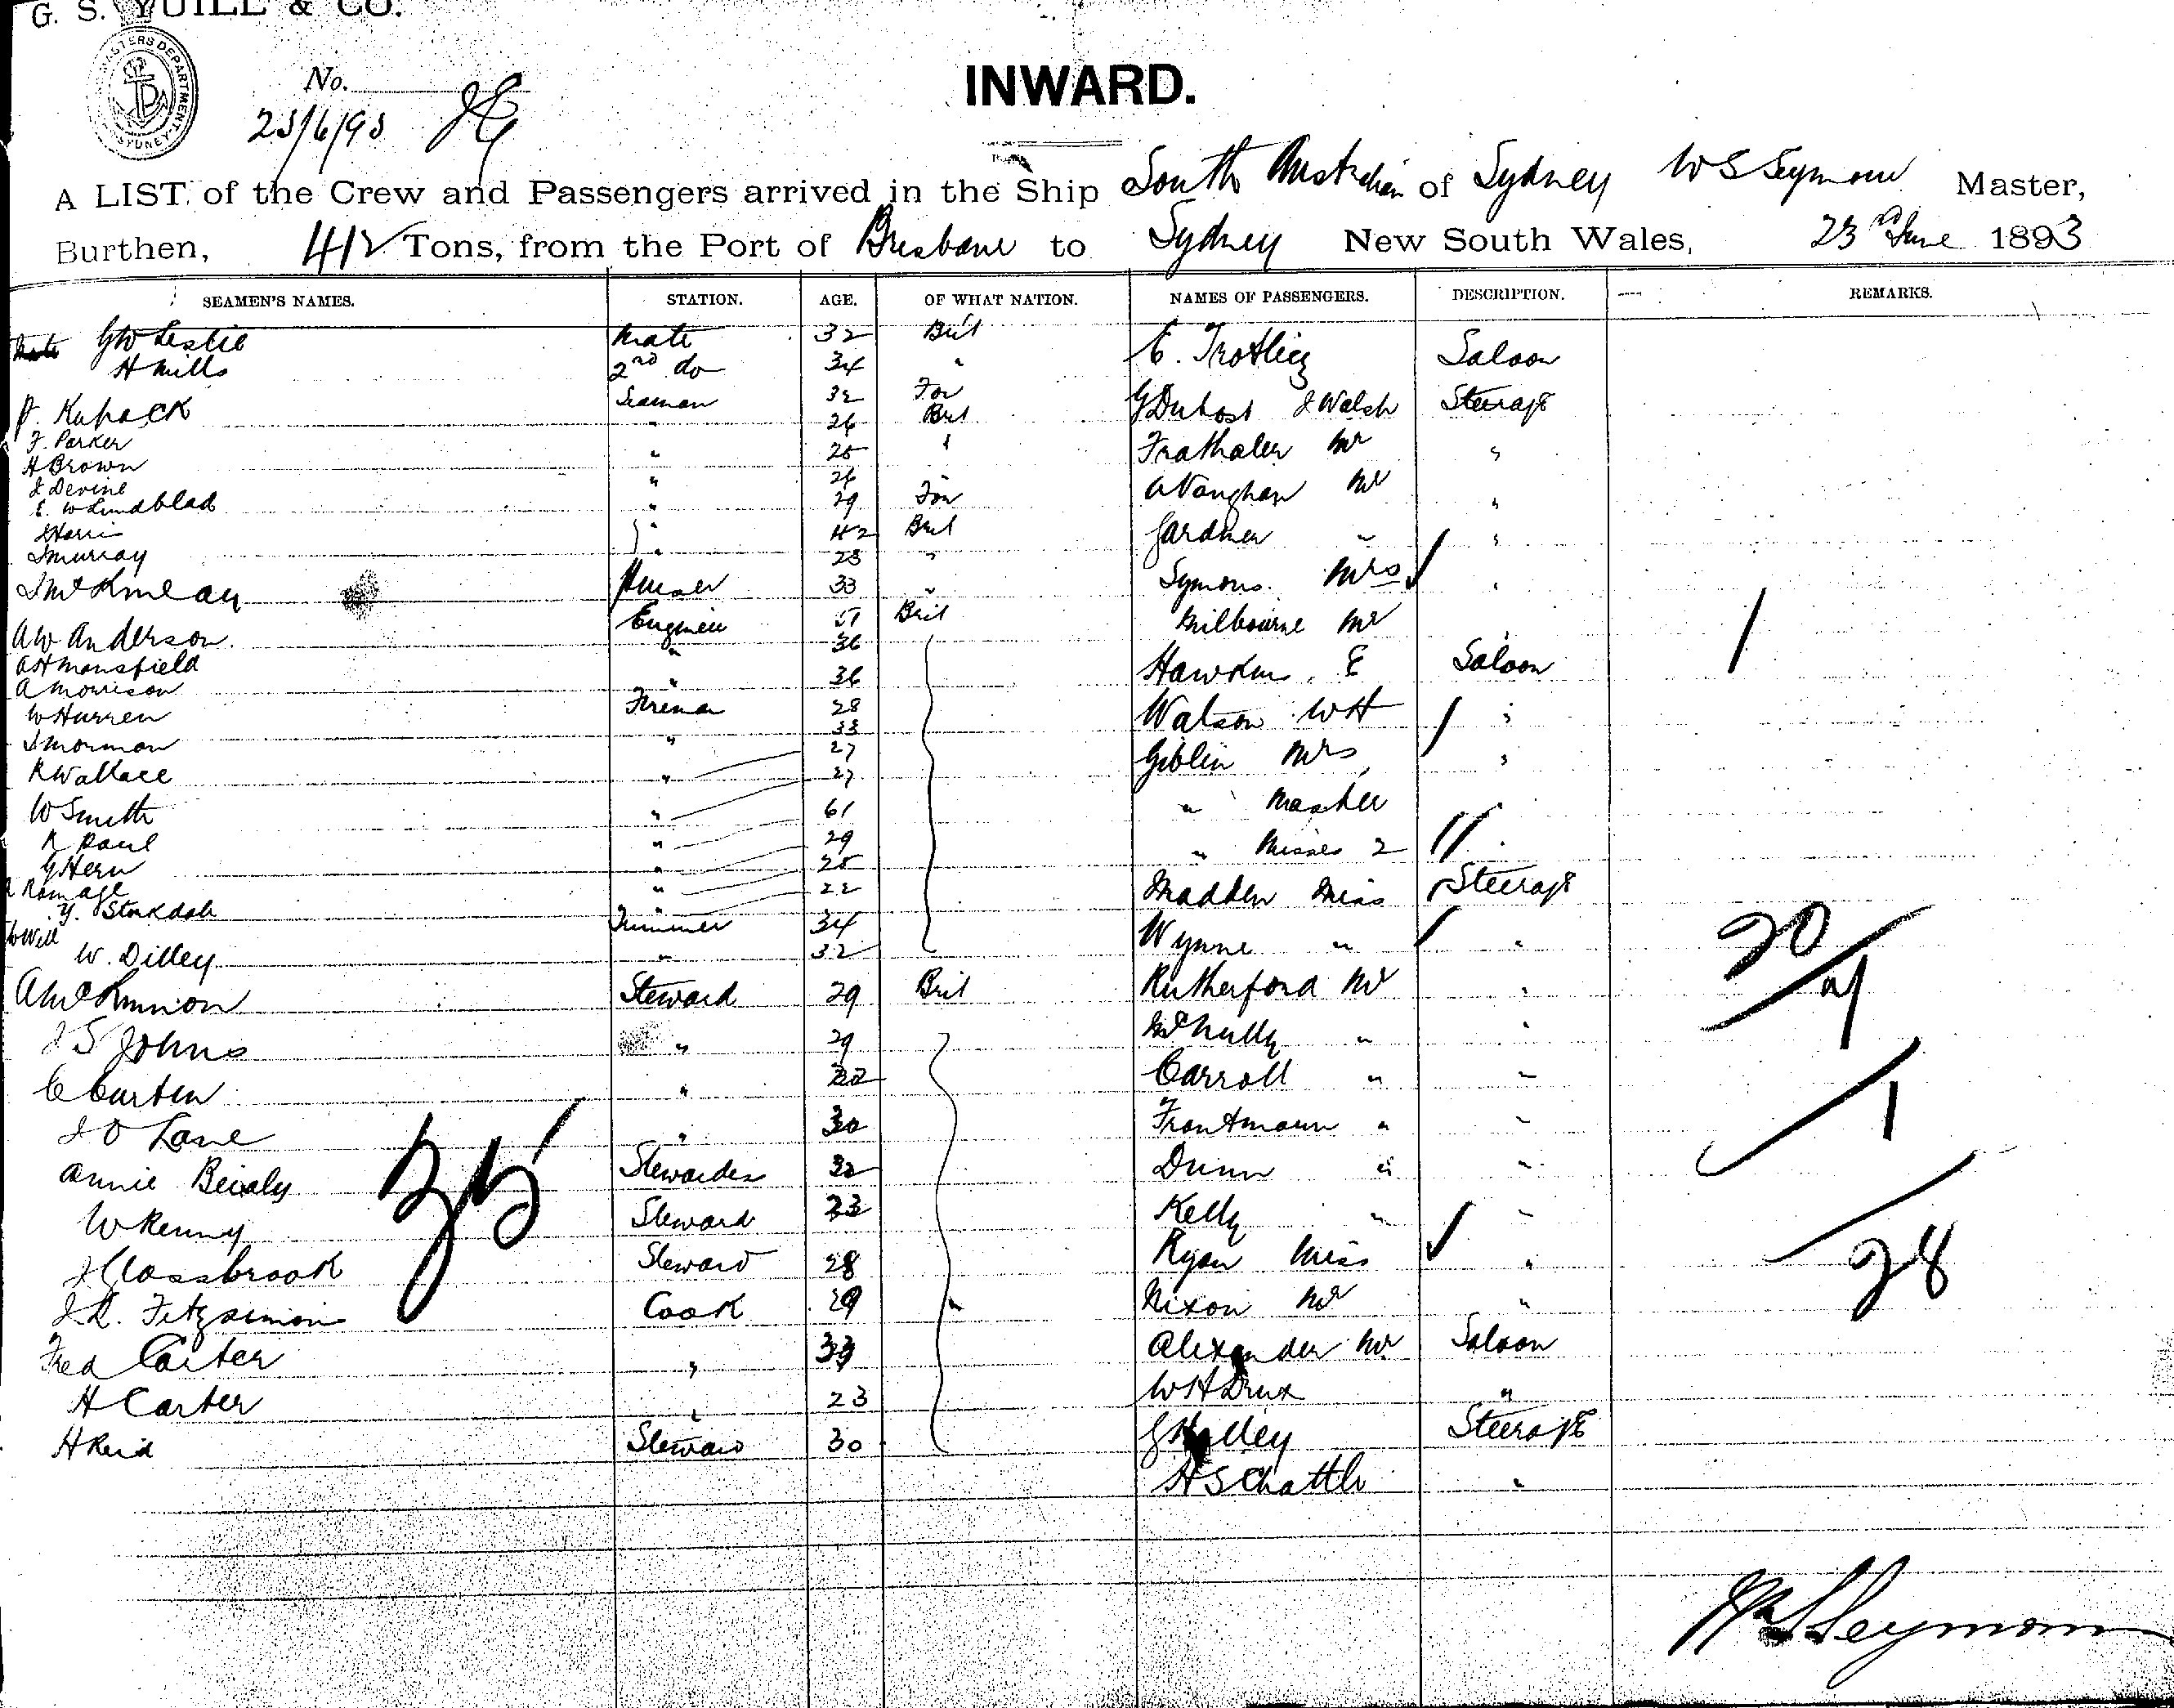 G. S. YUILL & CO.
MASTERS DEPARTMENT. SYDNEY
No.
23/6/93
INWARD.
A LIST of the Crew and Passengers arrived in the Ship South Australian of Sydney W S Seymour Master,
Burthen, 412 Tons, from the Port of Brisbane to Sydney New South Wales, 23rd June 1893
SEAMEN'S NAMES. STATION. AGE. OF WHAT NATION. NAMES OF PASSENGERS. DESCRIPTION. REMARKS.
Mate GW Leslie Mate 32 Brit E. Saloon
H Mills 2nd do 34 "
Seaman 32 For G Dubost J Walsh Steerage
F. Parker " 26 Brit
H Brown " 25 " Mr "
J Devine " 26 " A Vaughan Mr "
E. W Lindblad " 29 For
J Harris " 42 Brit Gardner " "
J Murray " 23 "
Purser 33 " Symons Mrs "
AW Anderson Engineer Brit Milbourne Mr "
AH Mansfield " 36
A Morrison " 36 Hawkins E Saloon
W Hurren Fireman 28 Watson WH "
J Morman " 33
R Wallace " 27 Giblin Mrs "
W Smith " 61 " Master "
R Paul " 29 " Misses 2 "
G Hern " 25
R Ramage " 22 Madden Miss Steerage
Y. Stokdale Trimmer 34
W. Dilley " 32 Wynne " "
20
A McKinnon Steward 29 Brit Rutherford Mr "
J S Johns " 29 McNully " "
C Curten " Carroll " "
J O Lane " 30 Frontmann " "
Annie Stewardess 32 Dunn " "
35
W Kenny Steward 23 Kelly " "
J Glassbrook Steward 28 Ryan Miss "
28
J R. Fitzsimon Cook 29 " Nixon Mr "
Fred Carter " Alexander Mr Saloon
H Carter " 23 WH Drux "
H Reid Steward 30 Steerage
H Schattle "
WS Seymour